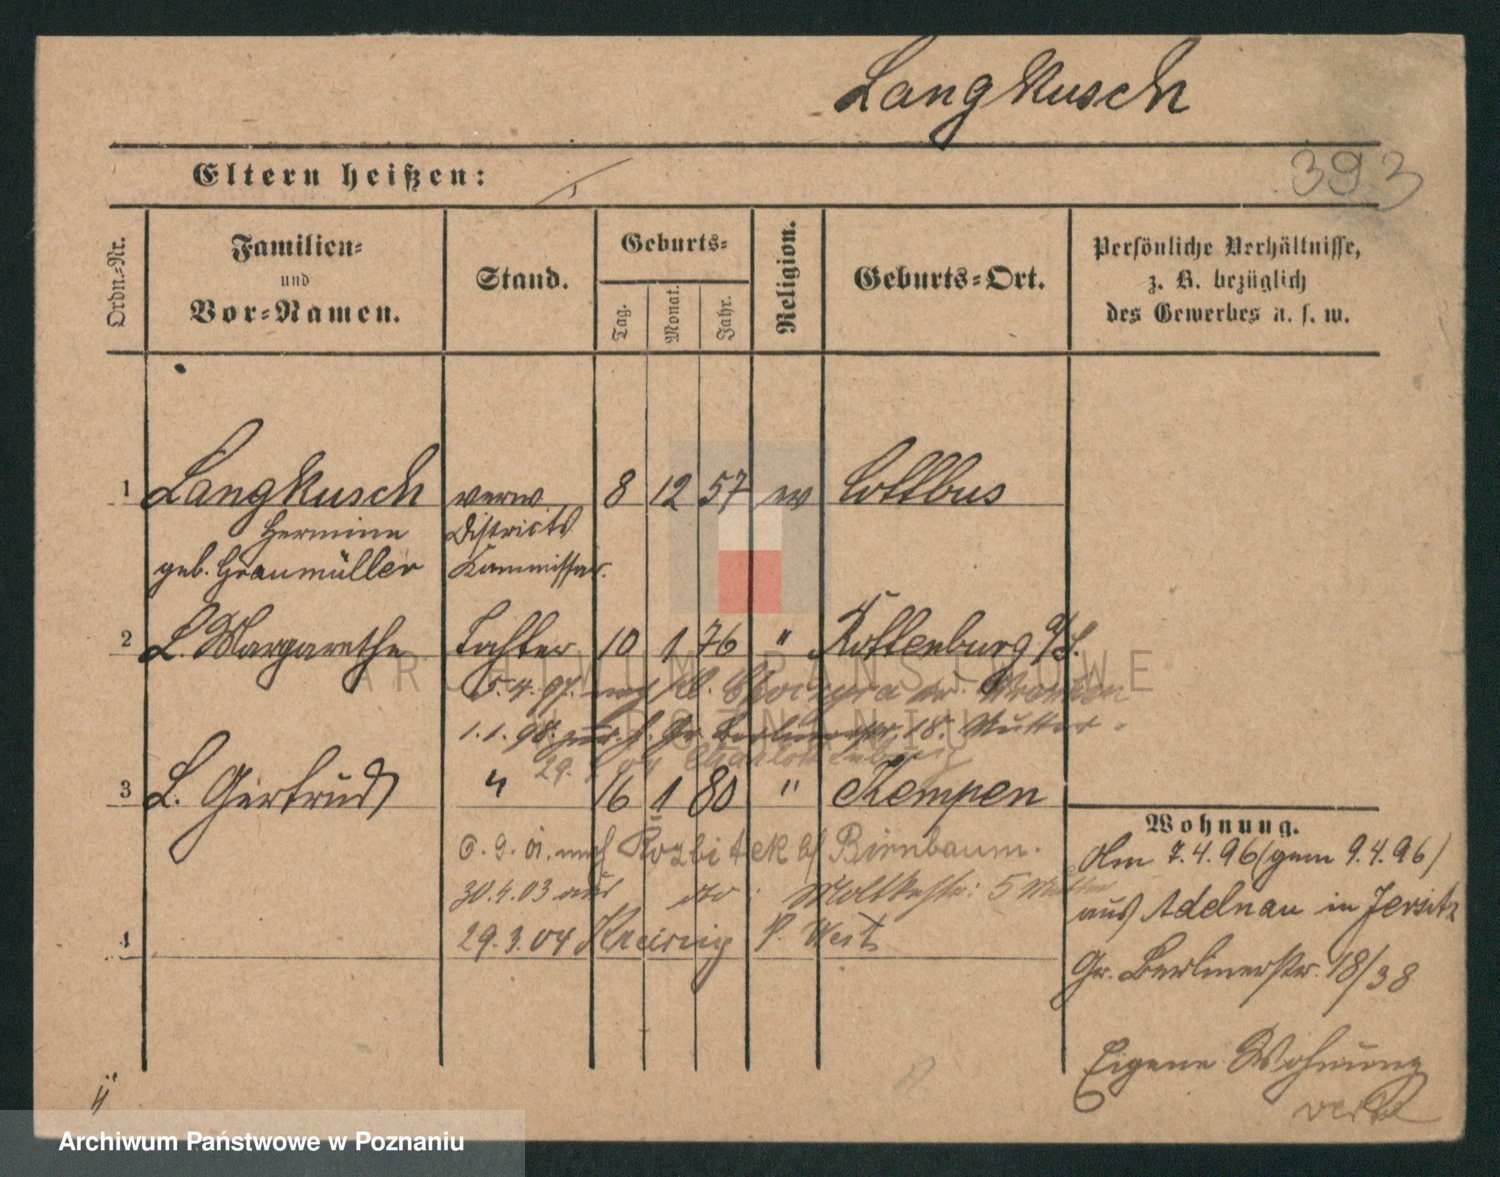 Langkusch
393
Eltern heißen:
Ordn.-Nr.
Familien-
und
Vor-Namen.
Stand.
Geburts-
Tag.
Monat.
Jahr.
Religion.
Geburts-Ort.
Persönliche Verhältnisse,
z. B. bezüglich
des Gewerbes u. s. w.
1 Langkusch verw. 8 12 57 ev Cottbus
Hermine Districts
geb. Graumüller Kommissar.
2 L. Margarethe Tochter 10 1 76 " Rottenburg
5.4.97. nach
1.1.98. Gr. Berlinerstr. 18. Mutter
29. 04 Charlottenburg
3 L. Gertrud " 16 1 80 " Kempen
nach Rozbitek b/ Birnbaum.
30.4.03 aus do: Moltkestr: 5 Mutter
4 29.3.04 P. West
Wohnung.
Am 7.4.96 (gem 9.4.96)
aus Adelnau in Jersitz
Gr. Berlinerstr. 18/38
Eigene Wohnung
ARCHIWUM PAŃSTWOWE
W POZNANIU
Archiwum Państwowe w Poznaniu